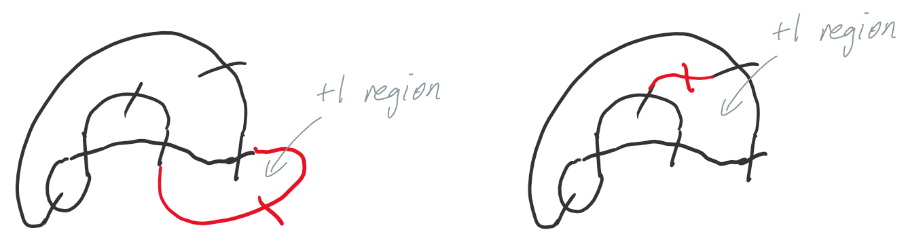 +1 region
+1 region